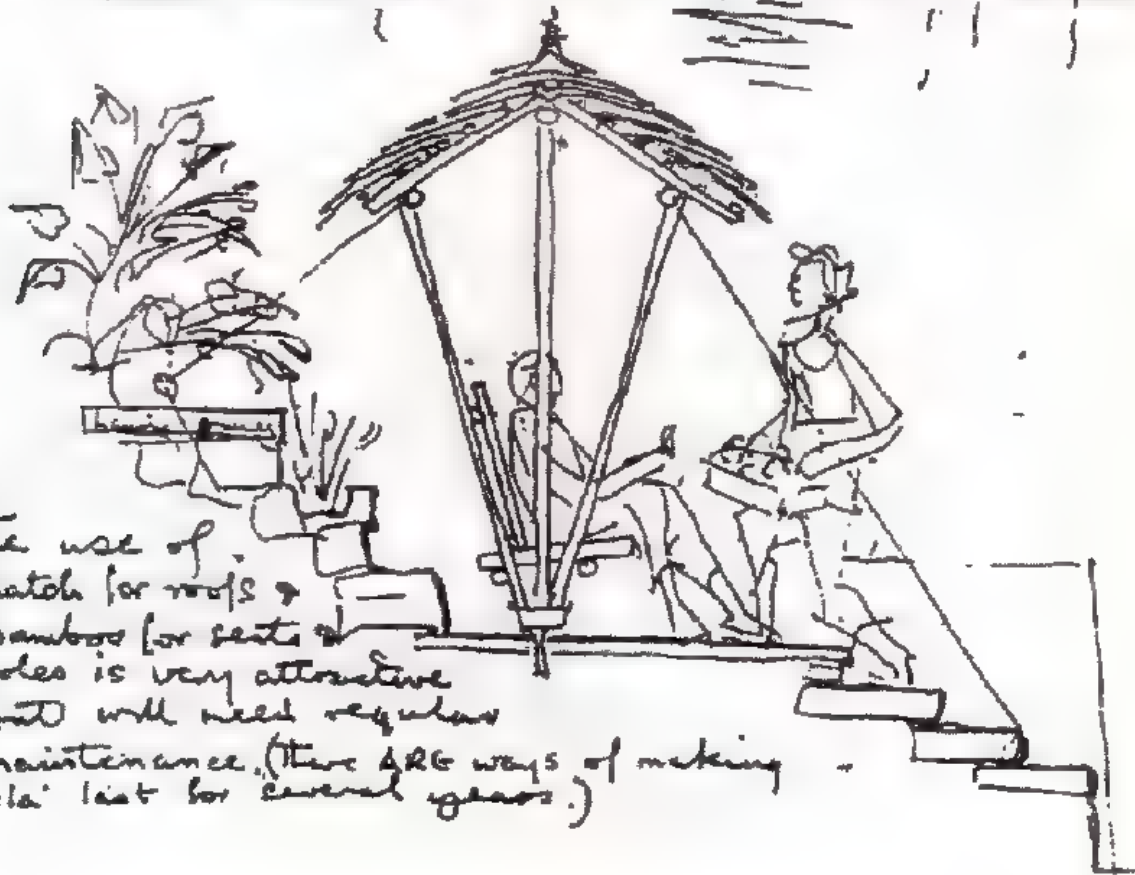 use of
thatch for roofs &
bamboo for seats &
poles is very attractive
but will need regular
maintenance. (There ARE ways of making
ola' last for several years.)